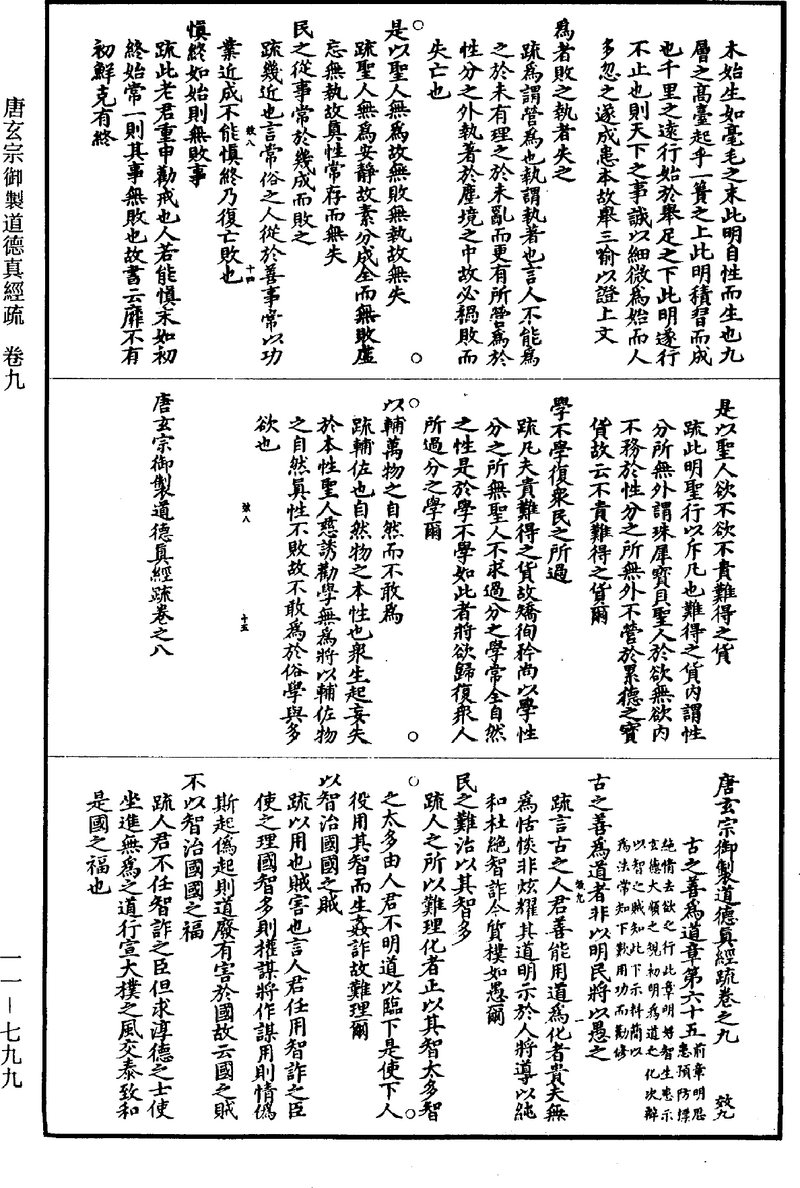 木始生如毫毛之末此明自性而生也九
層之高臺起乎一簣之上此明積習而成
也千里之遠行始於舉足之下此明遂行
不止也則天下之事誠以細微為始而人
多忽之遂成患本故舉三喻以證上文
為者敗之執者失之
疏為謂營為也執謂執著也言人不能為
之於未有理之於未亂而更有所營為於
性分之外執著於塵境之中故必禍敗而
失亡也
是以聖人無為故無敗無執故無失
疏聖人無為安靜故素分成全而無敗虛
忘無執故真性常存而無失
民之從事常於幾成而敗之
疏幾近也言常俗之人從於善事常以功
效八 十四
業近成不能慎終乃復亡敗也
慎終如始則無敗事
疏此老君重申勸戒也人若能慎末如初
終始常一則其事無敗也故書云靡不有
初鮮克有終
是以聖人欲不欲不貴難得之貨
疏此明聖行以斥凡也難得之貨內謂性
分所無外謂珠犀寶貝聖人於欲無欲內
不務於性分之所無外不營於累德之寶
貨故云不貴難得之貨爾
學不學復眾民之所過
疏凡夫貴難得之貨故矯徇矜尚以學性
分之所無聖人不求過分之學常全自然
之性是於學不學如此者將欲歸復眾人
所過分之學爾
以輔萬物之自然而不敢為
疏輔佐也自然物之本性也眾生起妄失
於本性聖人慈誘勸學無為將以輔佐物
之自然真性不敗故不敢為於俗學與多
欲也
效八 十五
唐玄宗御製道德真經疏卷之八
唐玄宗御製道德真經疏卷之九 效九
古之善為道章第六十五
前章明思患預防慓
純情去欲之行此章明將智生患示
玄德大順之規初明為道之化次辯
以智之賊知此下示料簡以
為法常知下歎用功而勤修
古之善為道者非以明民將以愚之
效九 一
疏言古之人君善能用道為化者貴夫無
為恬惔非炫耀其道明示於人將導以純
和杜絕智詐令質樸如愚爾
民之難治以其智多
疏人之所以難理化者止以其智太多智
之太多由人君不明道以臨下是使下人
役用其智而生姦詐故難理爾
以智治國國之賊
疏以用也賊害也言人君任用智詐之臣
使之理國智多則權謀將作謀用則情偽
斯起偽起則道廢有害於國故云國之賊
不以智治國國之福
疏人君不任智詐之臣但求淳德之士使
坐進無為之道行宣大樸之風交泰致和
是國之福也
唐玄宗御製道德真經疏 卷九
一一－七九九